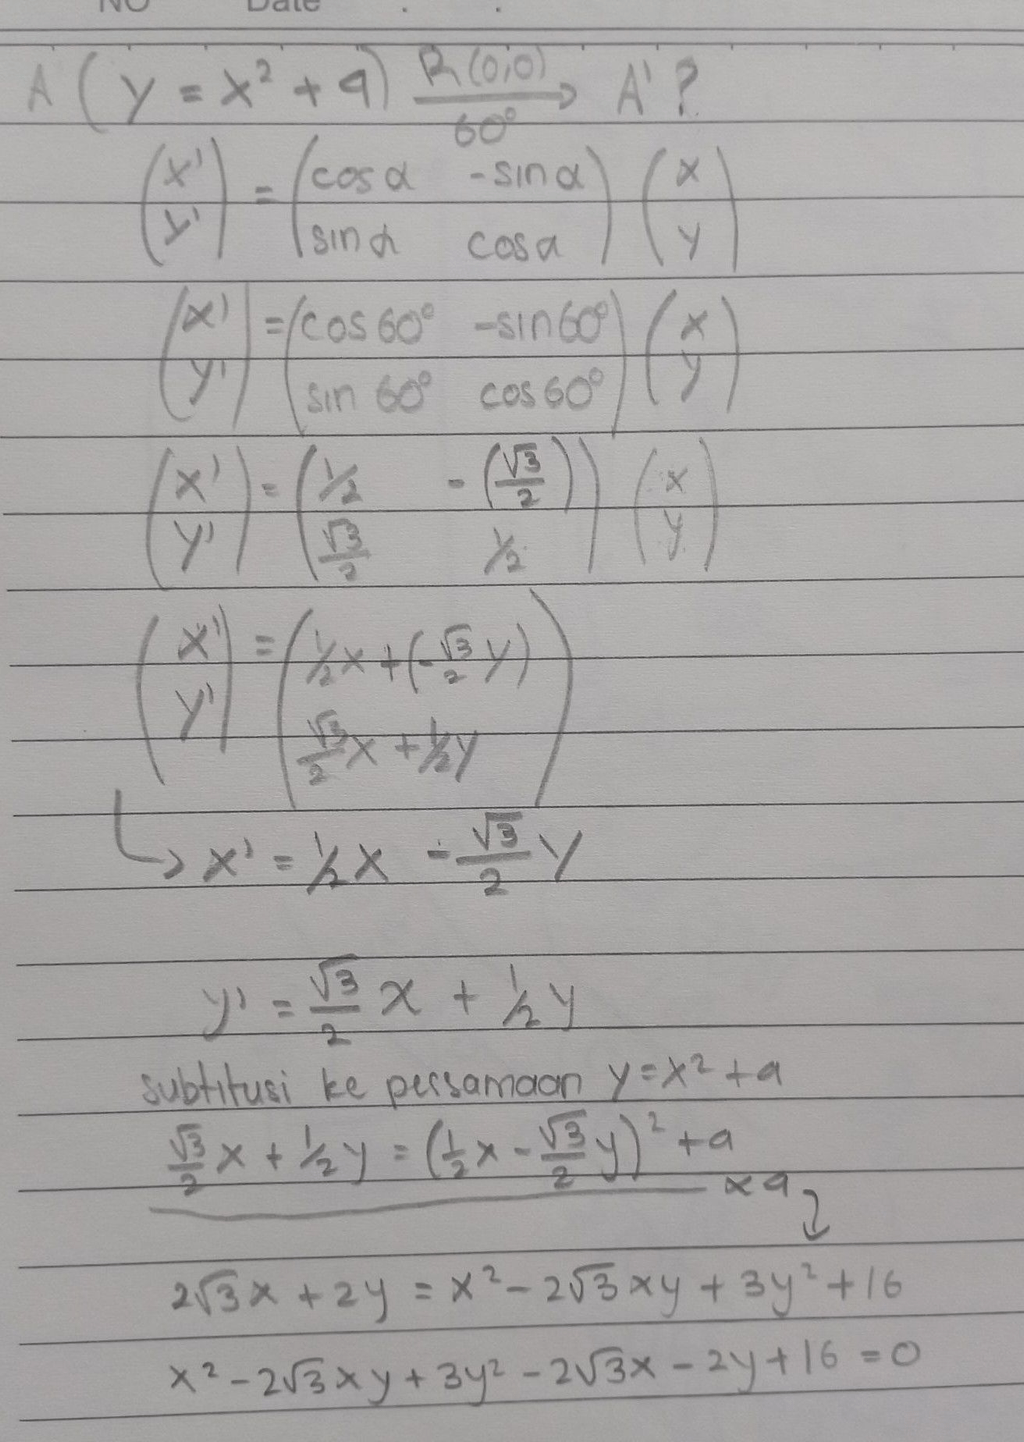 NO Date . .
A ( y = x² + 4 ) R(0,0) → 60° A' ?
( x' y' ) = ( cos α -sin α sin α cos α ) ( x y )
( x' y' ) = ( cos 60° -sin 60° sin 60° cos 60° ) ( x y )
( x' y' ) = ( 1/2 -(√3/2) √3/2 1/2 ) ( x y )
( x' y' ) = ( 1/2 x + (-√3/2 y) √3/2 x + 1/2 y )
↳ x' = 1/2 x - √3/2 y
y' = √3/2 x + 1/2 y
subtitusi ke persamaan y = x² + 4
√3/2 x + 1/2 y = (1/2 x - √3/2 y)² + 4
× 4 ↓
2√3x + 2y = x² - 2√3xy + 3y² + 16
x² - 2√3xy + 3y² - 2√3x - 2y + 16 = 0